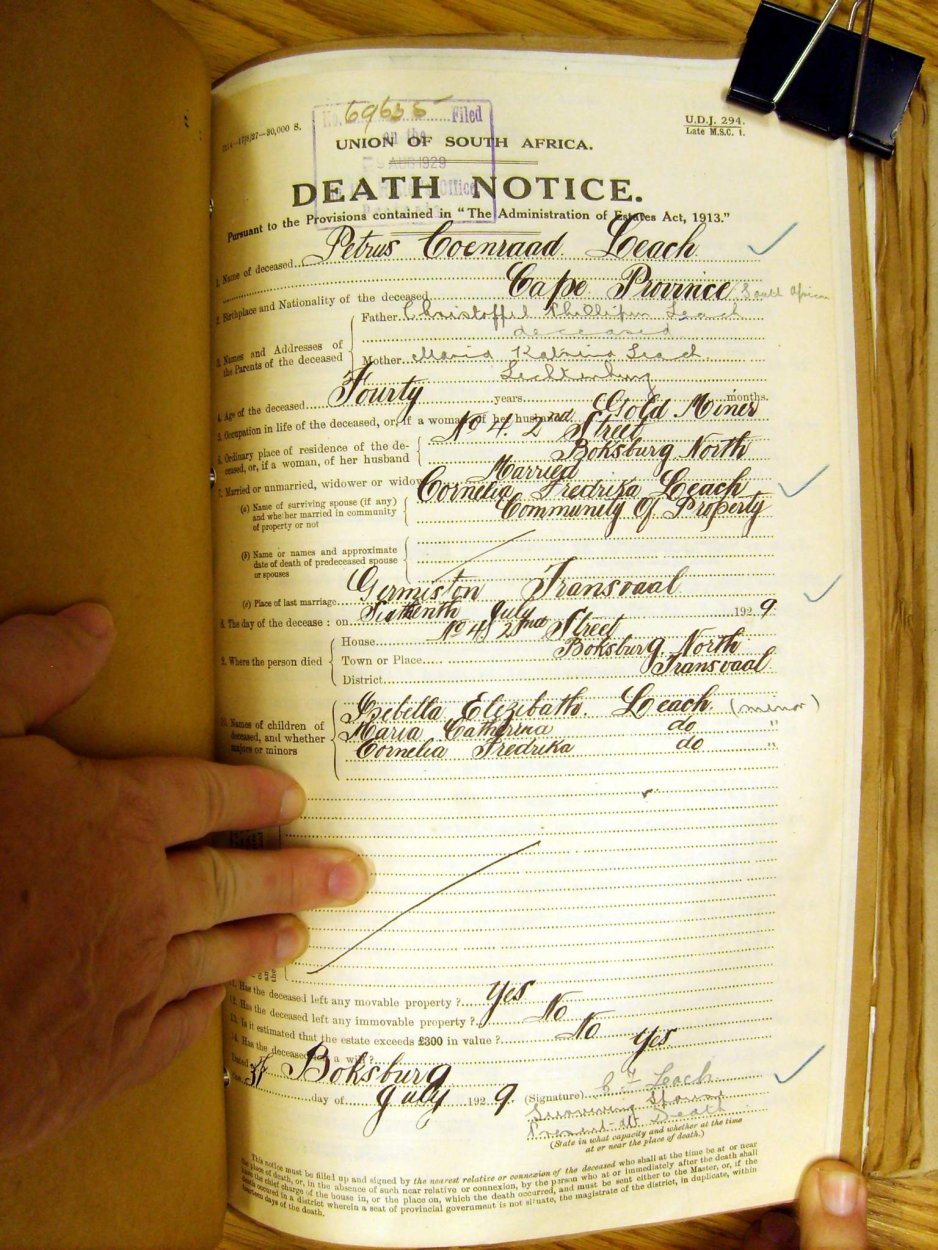 No. 69635 Filed
on the
9 AUG 1929
Office
U.D.J. 294.
Late M.S.C. 1.
UNION OF SOUTH AFRICA.
DEATH NOTICE.
Pursuant to the Provisions contained in "The Administration of Estates Act, 1913."
1. Name of deceased Petrus Coenraad Leach
Cape Province South African
2. Birthplace and Nationality of the deceased
3. Names and Addresses of the Parents of the deceased
Father Christoffel Phillipus Leach
deceased
Mother Maria Katrina Leach
Lichtenburg
4. Age of the deceased Fourty years months.
5. Occupation in life of the deceased, or, if a woman, of her husband Gold Miner
6. Ordinary place of residence of the deceased, or, if a woman, of her husband
No 4. 2nd Street
Boksburg North
7. Married or unmarried, widower or widow Married
(a) Name of surviving spouse (if any) and whether married in community of property or not
Cornelia Fredrika Leach
Community Of Property
(b) Name or names and approximate date of death of predeceased spouse or spouses
(c) Place of last marriage Germiston Transvaal
8. The day of the decease: on July 1929
9. Where the person died
House No 4 2nd Street
Town or Place Boksburg. North
District Transvaal
10. Names of children of deceased, and whether majors or minors
Isebella Elezibath. Leach (minor)
Maria Catherina do "
Cornelia Fredrika do "
11. Has the deceased left any movable property? Yes
12. Has the deceased left any immovable property? No
13. Is it estimated that the estate exceeds £300 in value? No
14. Has the deceased a will? Yes
Dated Boksburg
31 day of July 1929
(Signature) C F Leach
Surviving Spouse
Present at Death
(State in what capacity and whether at the time
at or near the place of death.)
This notice must be filled up and signed by the nearest relative or connexion of the deceased who shall at the time be at or near
the place of death, or, in the absence of such near relative or connexion, by the person who at or immediately after the death shall
have the chief charge of the house in, or the place on, which the death occurred, and must be sent either to the Master, or, if the
death occurred in a district wherein a seat of provincial government is not situate, the magistrate of the district, in duplicate, within
fourteen days of the death.